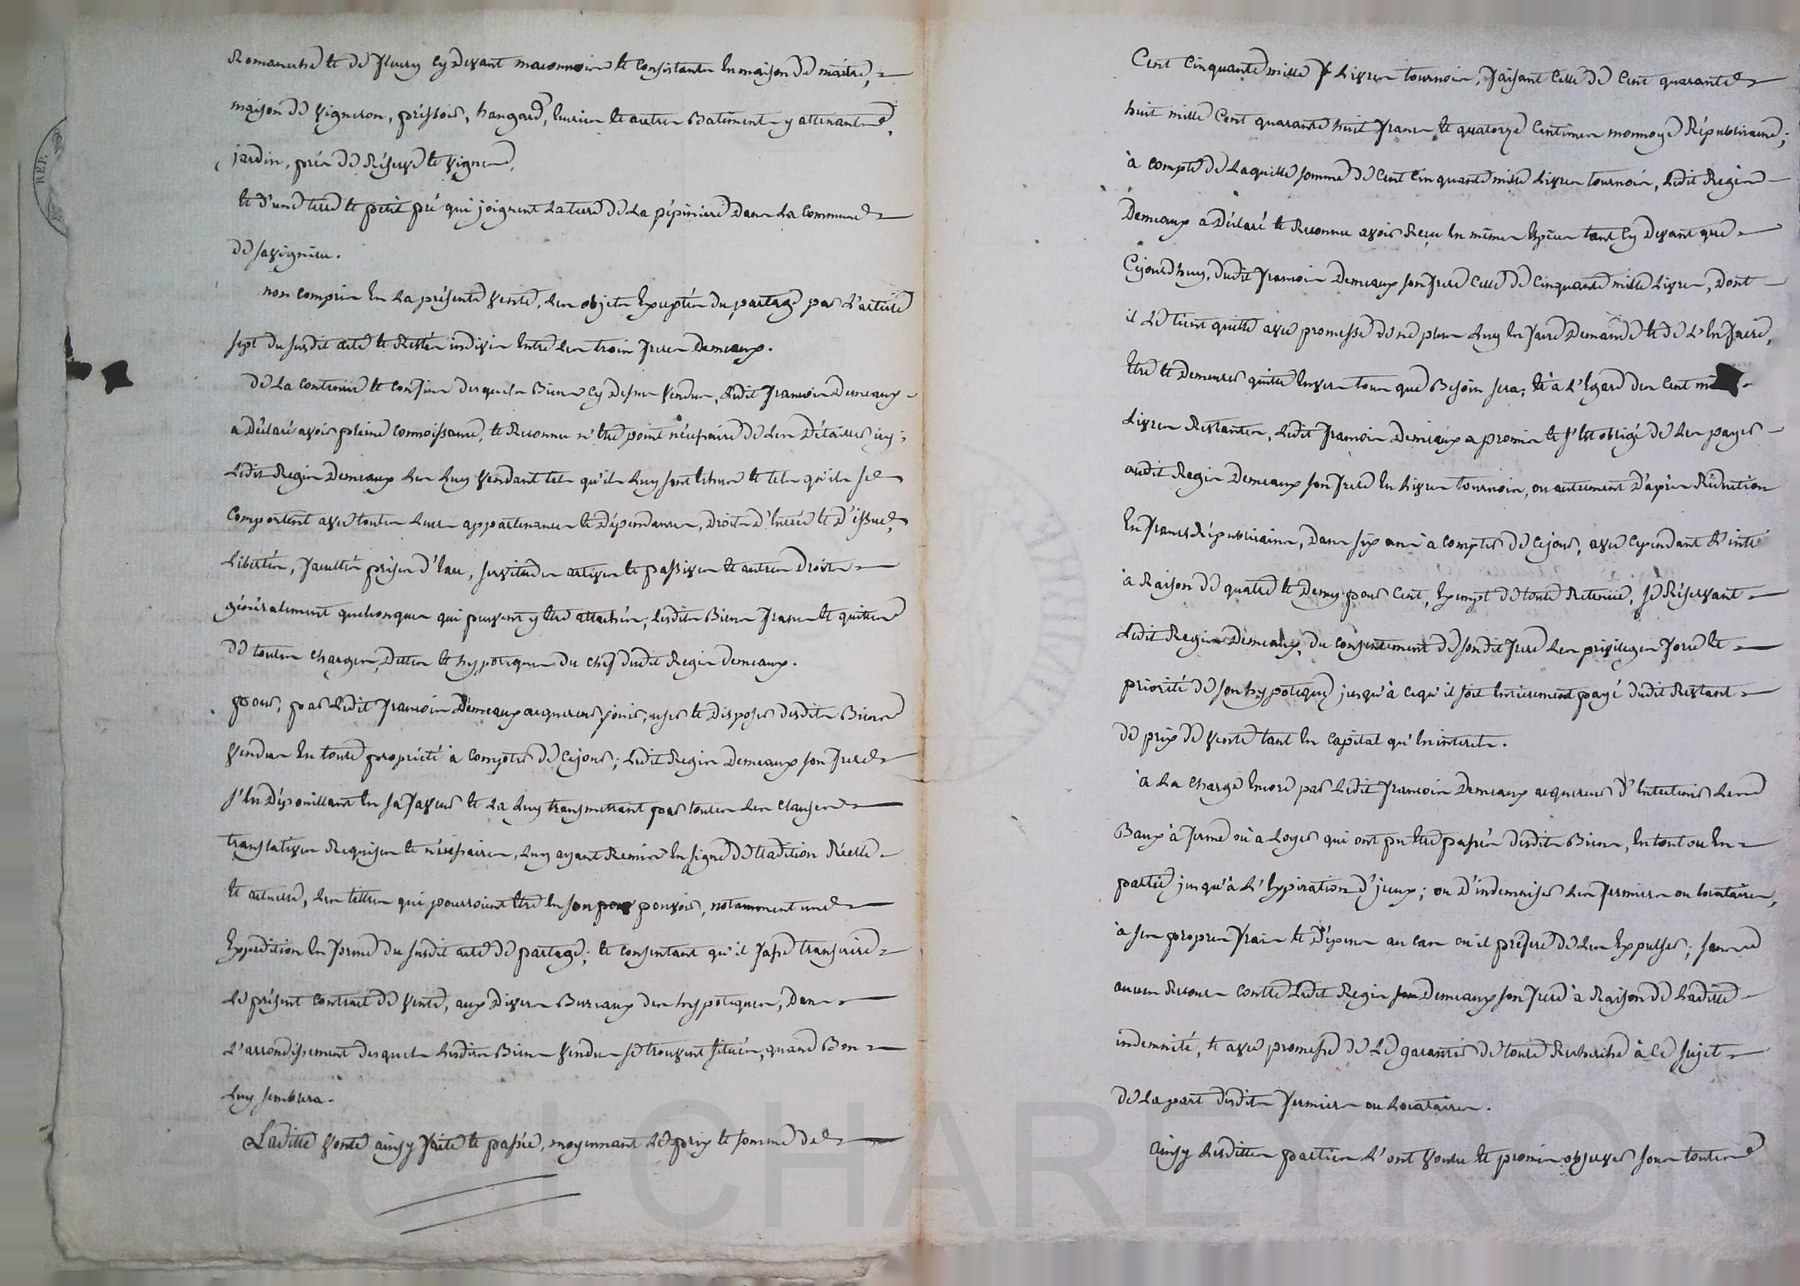 Romaneche et de fleury cy devant maconnois et consistantes en maison de maitre,
maison de vigneron, pressoir, hangard, ecuries et autres batiments y attenants,
jardin, prés de réserve et vignes.
et d'une terre et petit pré qui joignent la terre de la pépiniere dans la commune
de savignieu.
non compris en la présente vente, les objets exceptés du partage par l'article
sept du susdit acte et restés indivis entre les trois freres Demeaux.
de la contenue et confins desquels Biens cy dessus vendus, ledit françois Demeaux
a déclaré avoir pleine connoissance, et reconnu n'etre point nécessaire de les détailler icy;
ledit Regis Demeaux les luy vendant tels qu'ils luy sont échus et tels qu'ils se
comportent avec toutes leurs appartenances et dépendances, droits d'entrée et d'issue,
libertés, facultés prises d'eau, servitudes actives et passives et autres droits
généralement quelconques qui peuvent y etre attachés; lesdits Biens francs et quittes
de toutes charges, dettes et hypoteques du chef dudit Regis demeaux.
pour, par ledit françois Demeaux acquereur jouir, user et disposer desdits Biens
vendus en toute propriété à compter de cejour; ledit Regis Demeaux son frere
s'en dépouillant en sa faveur et la luy transmettant par toutes les clauses
translatives requises et nécessaires, luy ayant remis en signe de tradition réelle
et actuelle, les titres qui pourroient etre en son pouvoir, notamment une
Expédition en forme du susdit acte de partage; et consentant qu'il fasse transcrire
le présent contrat de vente, aux divers Bureaux des hypoteques, dans
l'arrondissement desquels lesdits Biens vendus se trouvent situés, quand Bon
luy semblera.
Laditte vente ainsy faite et passée, moyennant le prix et somme de
Cent cinquante mille livres tournois, faisant celle de Cent quarante
huit mille Cent quarante huit francs et quatorze Centimes monnoye Républicaine;
à compte de laquelle somme de Cent cinquante mille livres tournois, ledit Regis
Demeaux a déclaré et reconnu avoir reçu en mêmes especes tant cy devant que
cejourdhuy, dudit françois Demeaux son frere celle de cinquante mille livres, dont
il le tient quitte avec promesse de ne plus luy en faire demande et de l'en faire,
etre et demeurer quitte envers tous que Besoin sera; et à l'égard des Cent
livres restantes, ledit françois Demeaux a promis et s'est obligé de les payer
audit Regis Demeaux son frere en livres tournois, ou autrement d'après Réduction
en francs Républicains, dans six ans à compter de cejour, avec cependant
à raison de quatre et demy pour Cent, exempt de toute retenue, se réservant
ledit Regis Demeaux, du consentement de sondit frere les privileges force et
priorité de son hypoteque jusqu'à cequ'il soit entierement payé dudit restant
de prix de vente tant en capital qu'en interets.
à la charge encore par ledit françois Demeaux acquereur d'entretenir les
Baux à ferme ou à loyer qui ont pu etre passés desdits Biens, en tout ou en
partie jusqu'à l'expiration d'iceux; ou d'indemniser les fermiers ou locataires,
à ses propres frais et dépens au cas où il préfere de les expulser; sans
aucun recours contre ledit Regis Demeaux son frere à raison de laditte
indemnité, et avec promesse de le garantir de toute recherche à ce sujet
de la part desdits fermiers ou locataires.
Ainsy lesdittes parties l'ont voulu et promis observer sous toutes